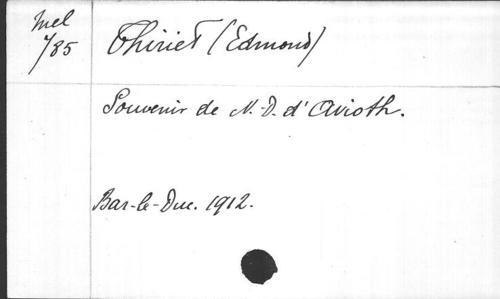 Mel
4/85
Thiriet (Edmond)
Souvenir de N.-D. d'Avioth.
Bar-le-Duc. 1912.